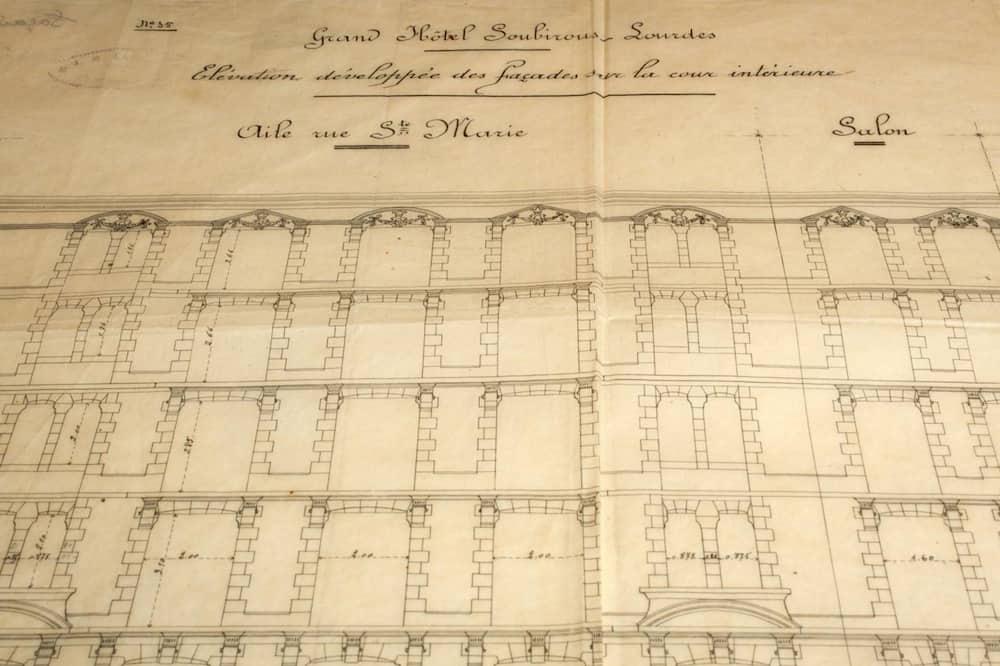 No 35
Grand Hôtel Soubirous - Lourdes
Elévation développée des façades sur la cour intérieure
Aile rue Ste Marie
Salon
2.66
2.85
2.00
3.50
2.00
2.00
2.00
.875
0.875
1.60